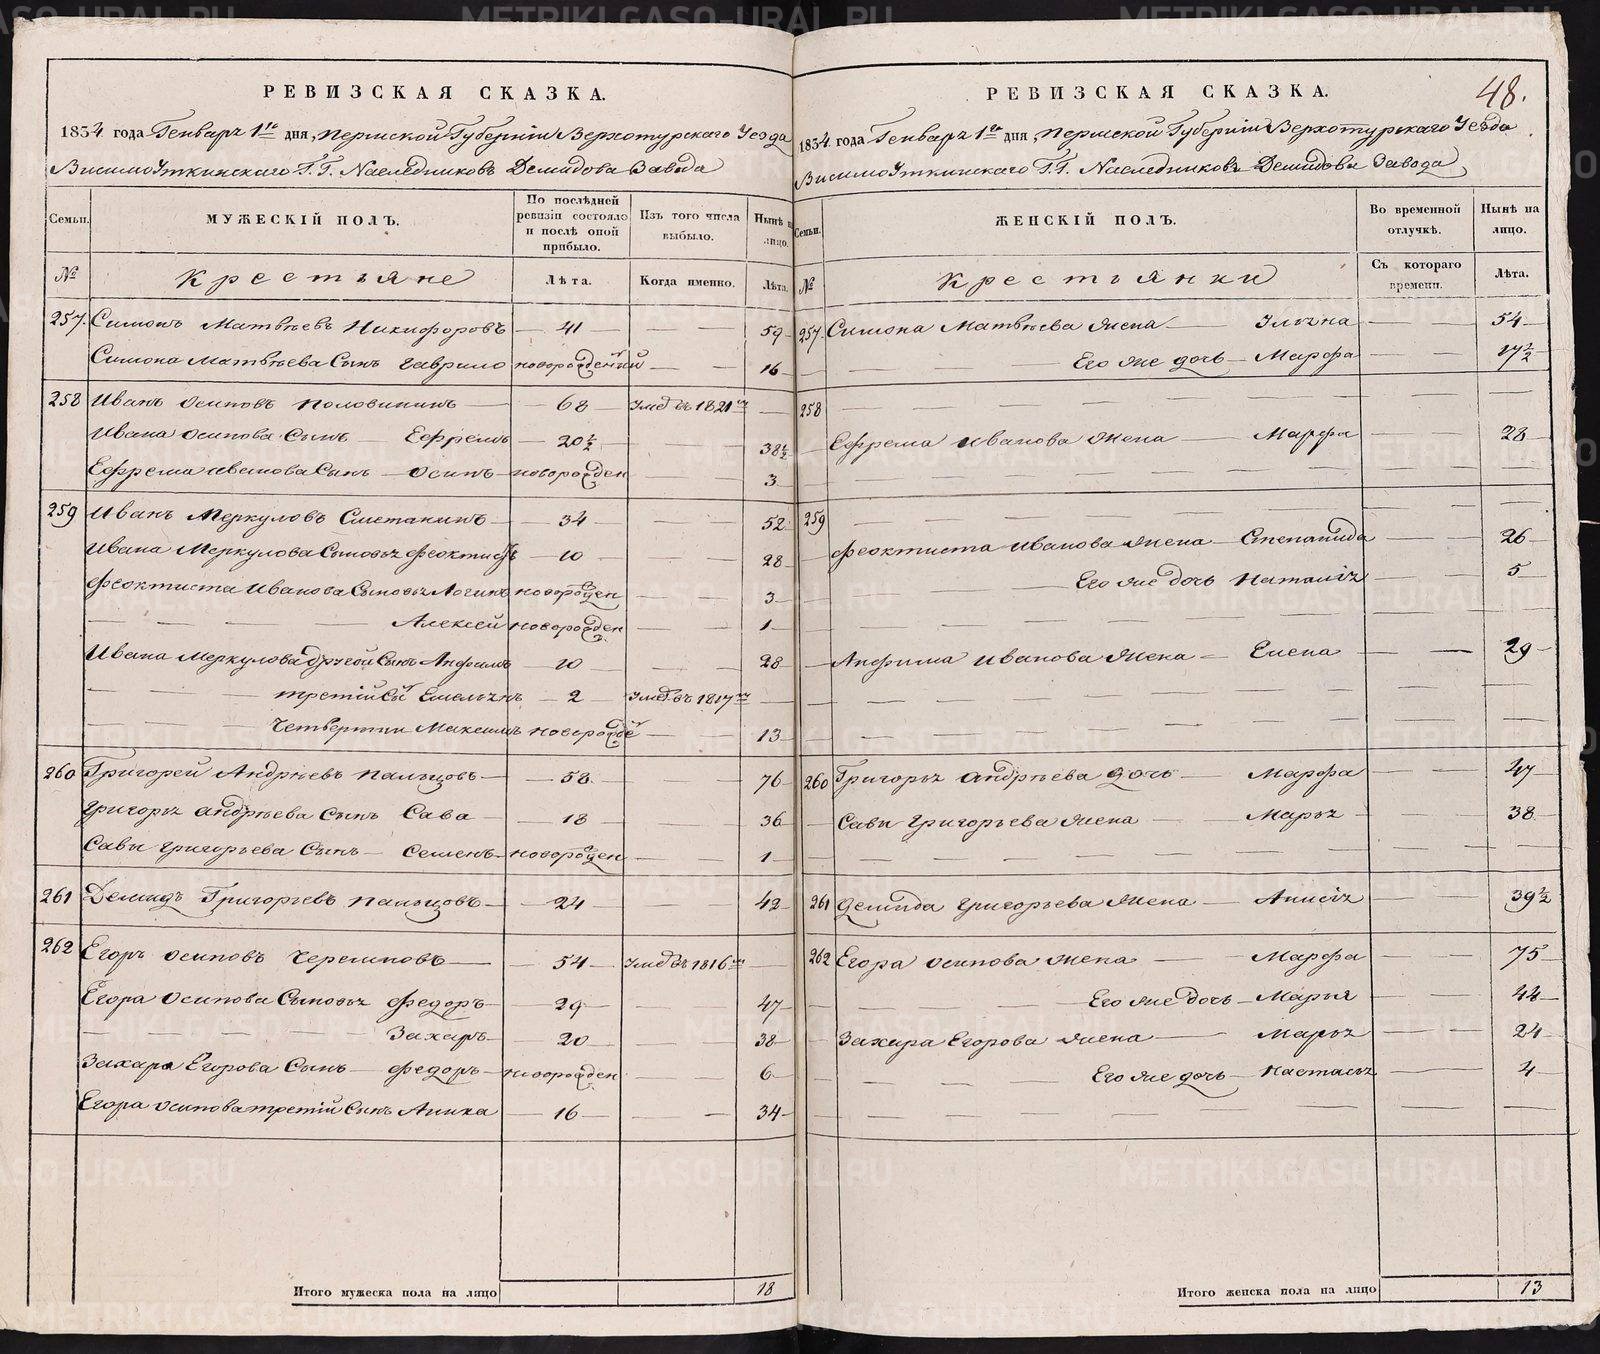 РЕВИЗСКАЯ СКАЗКА.
1834 года Генваря 1го дня, Пермской Губерніи Верхотурскаго Уезда
ВисимоУткинскаго Г.Г. Наследниковъ Демидова Завода
Семьи. МУЖЕСКІЙ ПОЛЪ. По послѣдней ревизіи состояло и послѣ оной прибыло. Изъ того числа выбыло. Нынѣ на лицо.
№ Крестьяне Лѣта. Когда именно. Лѣта.
257. Симонъ Матвѣевъ Никифоровъ 41 59
Симона Матвѣева Сынъ Гаврило новорожденный 16
258 Иванъ Осиповъ Половинкинъ 68 Умеръ въ 1821м
Ивана Осипова Сынъ Ефремъ 20½ 38½
Ефрема Иванова Сынъ Осипъ новорожден 3
259 Иванъ Меркуловъ Сметанинъ 34 52
Ивана Меркулова Сыновья Феоктистъ 10 28
Феоктиста Иванова Сыновья Логинъ новорожден 3
Алексей новорожден 1
Ивана Меркулова другой Сынъ Анфимъ 10 28
третій Сынъ Емельянъ 2 Умеръ въ 1817м
Четвертый Максимъ новорожде 13
260 Григорей Андрѣевъ Пальцовъ 58 76
Григорья Андрѣева Сынъ Сава 18 36
Савы Григорьева Сынъ Семенъ новорожден 1
261 Демидъ Григорьевъ Пальцовъ 24 42
262 Егоръ Осиповъ Черемновъ 54 Умеръ въ 1816м
Егора Осипова Сыновья Федоръ 29 47
Захаръ 20 38
Захара Егорова Сынъ Федоръ новорожден 6
Егора Осипова третій Сынъ Аника 16 34
Итого мужеска пола на лицо 18
48.
РЕВИЗСКАЯ СКАЗКА.
1834 года Генваря 1го дня, Пермской Губерніи Верхотурскаго Уезда
ВисимоУткинскаго Г.Г. Наследниковъ Демидова Завода
Семьи. ЖЕНСКІЙ ПОЛЪ. Во временной отлучкѣ. Нынѣ на лицо.
№ Крестьянки Съ котораго времени. Лѣта.
257. Симона Матвѣева Жена Ульяна 54
Его же дочь Марфа 17½
258
Ефрема Иванова Жена Марфа 28
259
Феоктиста Иванова Жена Степанида 26
Его же дочь Наталія 5
Анфима Иванова Жена Елена 29
260 Григорья Андрѣева дочь Марфа 47
Савы Григорьева Жена Марья 38
261 Демида Григорьева Жена Анисія 39½
262 Егора Осипова Жена Марфа 75
Его же дочь Марья 44
Захара Егорова Жена Марья 24
Его же дочь Настасья 4
Итого женска пола на лицо 13
METRIKI.GASO-URAL.RU